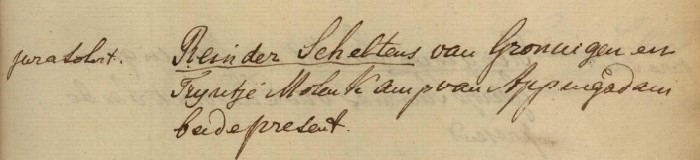 jura solvit. Reinder Scheltens van Groningen en
Tryntje Molenkamp van Appingadam
beide present.